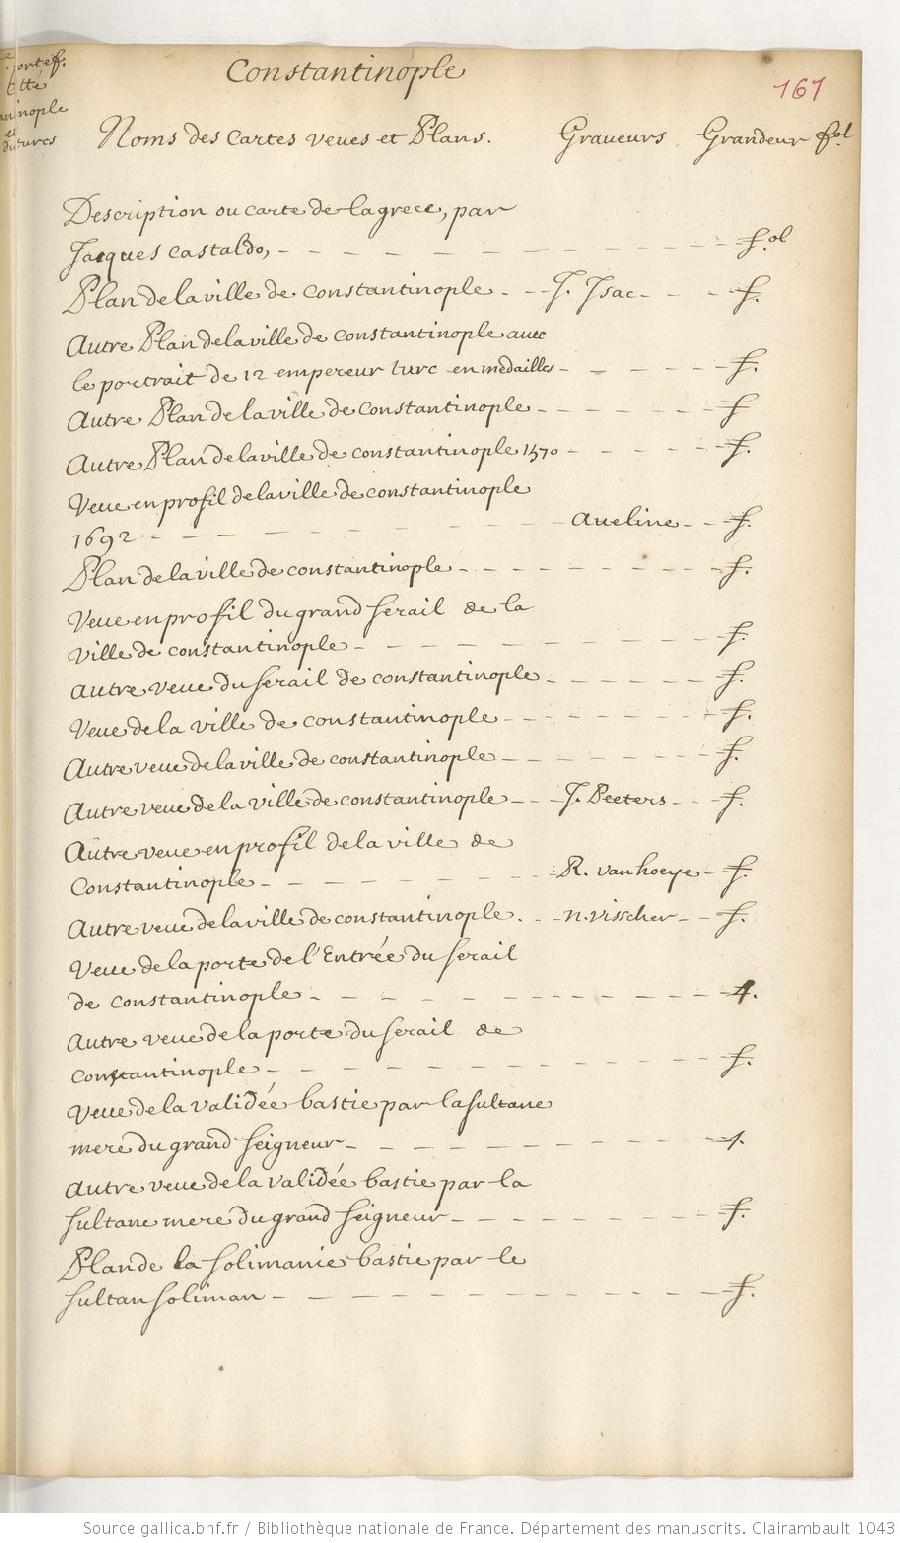 portef.
Constantinople
161
nople
et
Noms des cartes veues et Plans. Graveurs Grandeur fol
Description ou carte de la grece, par
Jacques castaldo, - - - - - - - - - - f.ol
Plan de la ville de constantinople - - J. Isac - - - f.
Autre Plan de la ville de constantinople avec
le portrait de 12 empereur turc en medailles - - - - - f.
Autre Plan de la ville de constantinople - - - - - - f
Autre Plan de la ville de constantinople 1570 - - - - - f.
Veue en profil de la ville de constantinople
1692 - - - - - - - - - - Aveline - - f.
Plan de la ville de constantinople - - - - - - - - f.
Veue en profil du grand serail de la
ville de constantinople - - - - - - - - - f.
Autre veue du serail de constantinople - - - - - - f.
Veue de la ville de constantinople - - - - - - - f.
Autre veue de la ville de constantinople - - - - - - - f.
Autre veue de la ville de constantinople - - - J. Peeters - - f.
Autre veue en profil de la ville de
Constantinople - - - - - - - - - R. van hoeye - f.
Autre veue de la ville de constantinople. - - n. visscher - - f.
Veue de la porte de l'Entrée du serail
de constantinople - - - - - - - - - - - 4.
Autre veue de la porte du serail de
constantinople - - - - - - - - - - - f.
Veue de la validée bastie par la sultane
mere du grand seigneur - - - - - - - - - - 4.
Autre veue de la validée bastie par la
sultane mere du grand seigneur - - - - - - - f.
Plan de la solimanie bastie par le
sultan soliman - - - - - - - - - - - f.
Source gallica.bnf.fr / Bibliothèque nationale de France. Département des manuscrits. Clairambault 1043